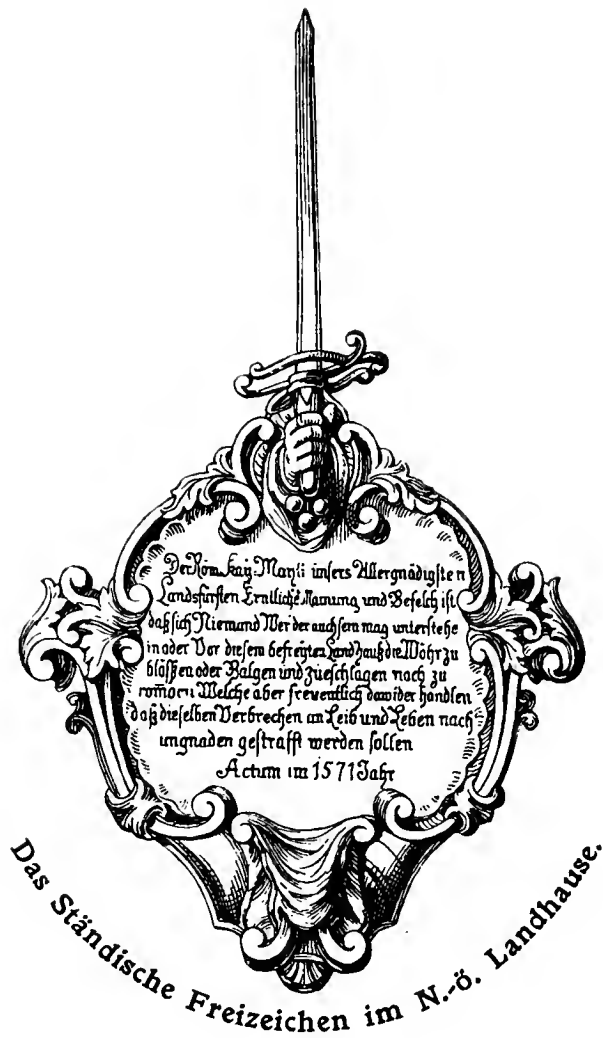 Der Röm. Kaÿ. May: tt: unsers Allergnädigsten
Landsfürsten Ernstliche Mainung und Befelch ist
daß sich Niemand Wer der auch sein mag unterstehe
in oder Vor diesem befreyten Landhauß die Wöhr zu
blössen oder Balgen und zueschlagen noch zu
romorn Welche aber freventlich dawider handlen
daß dieselben Verbrechen an Leib und Leben nach
ungnaden gestrafft werden sollen
Actum im 1571 Jahr
Das Ständische Freizeichen im N.-ö. Landhause.